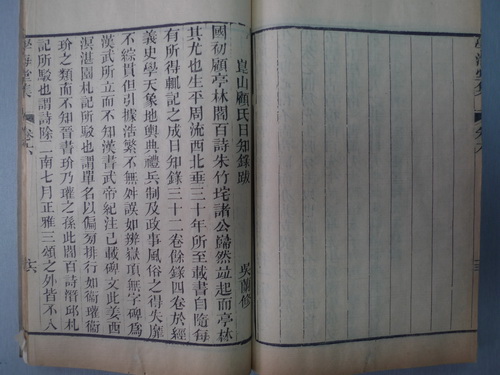 崑山顧氏日知錄跋
吳蘭修
國初顧亭林閻百詩朱竹垞諸公巋然竝起而亭林
其尤也生平周流西北垂三十年所至載書自隨每
有所得輒記之成日知錄三十二卷餘錄四卷於經
義史學天象地輿典禮兵制及政事風俗之得失靡
不綜貫但引據浩繁不無舛誤如辨嶽頂無字碑爲
漢武所立而不知漢書武帝紀注已載碑文此姜西
溟湛園札記所駁也謂單名以偏旁排行如衞瓘衞
玠之類而不知晉書玠乃瓘之孫此閻百詩潛邱札
記所駁也謂詩除二南七月正雅三頌之外皆不入
學海堂集